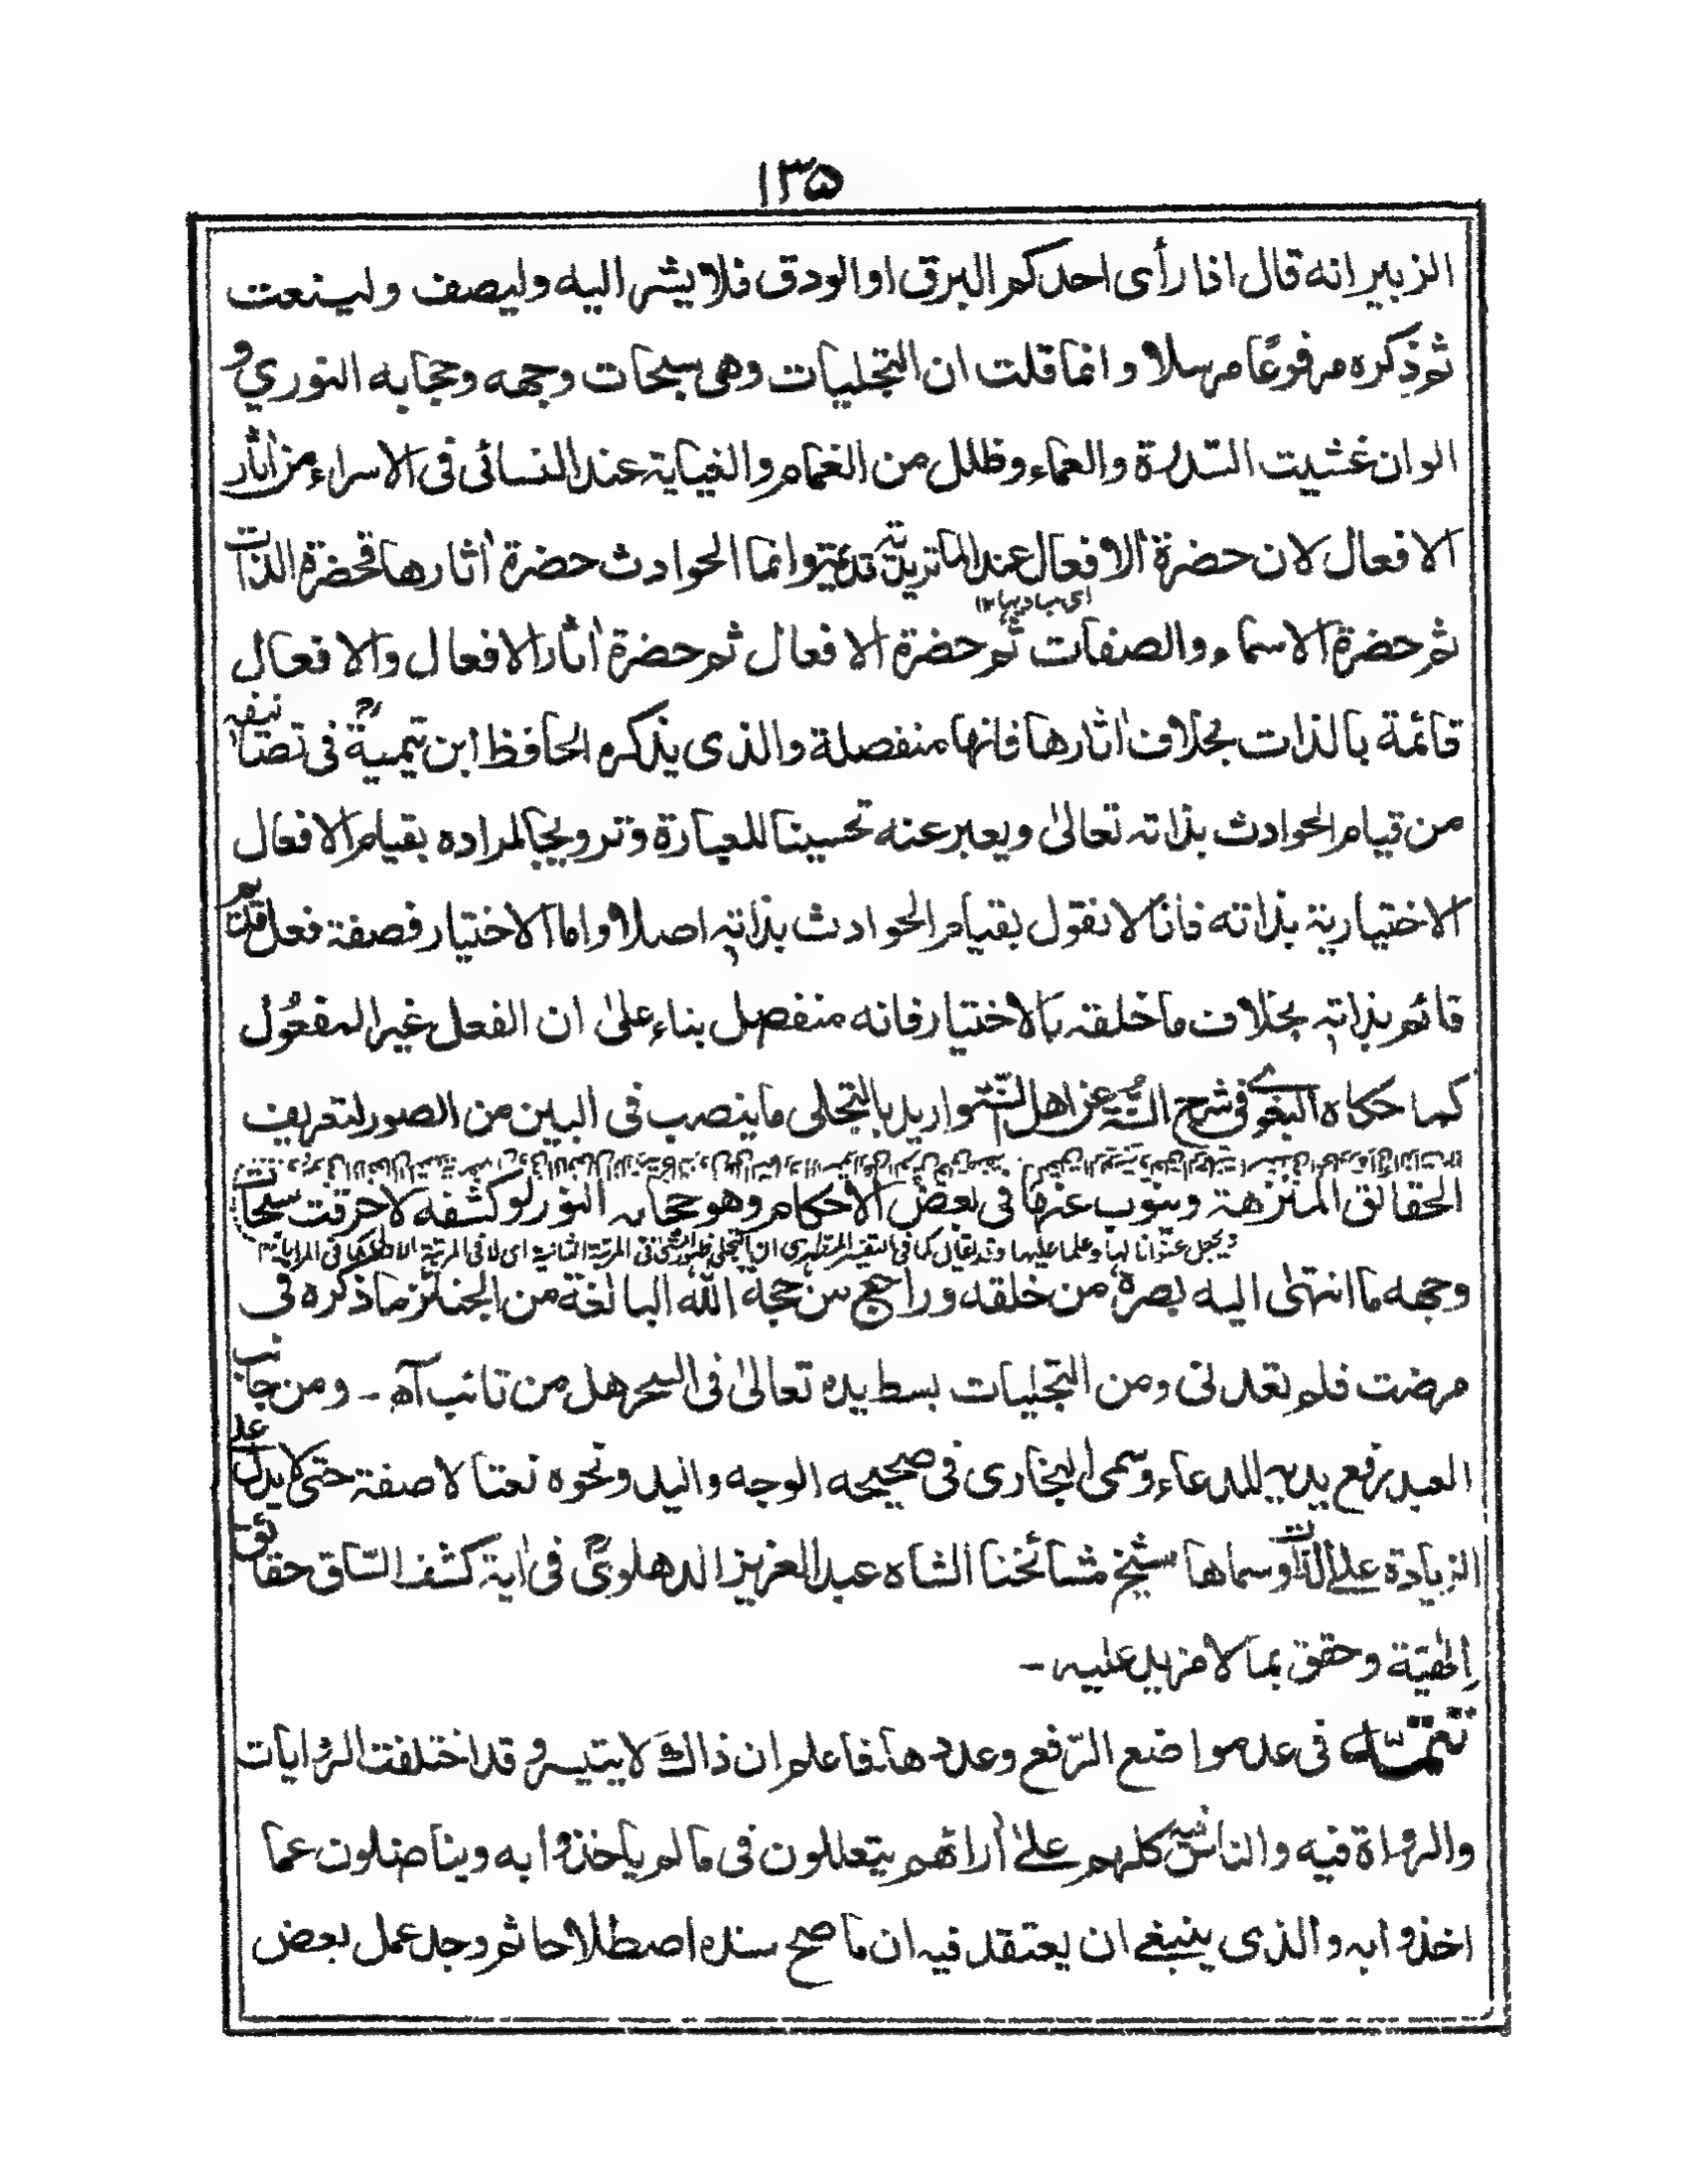 ١٣٥
الزبير انه قال اذا رأى احدكم البرق او الودق فلا يشر اليه وليصف ولينعت
ثم ذكره مرفوعًا مرسلا وانما قلت ان التجليات وهى سبحات وجهه وحجابه النوري و
الوان غشيت السّدرة والعماء وظلل من الغمام والغيابة عند النسائى فى الاسراء من اٰثار
الافعال لان حضرة الافعال عند الماتريديّة قديمة وانما الحوادث حضرة اٰثارها فحضرة الذات
اى مباديها ١٢
ثم حضرة الاسماء والصفات ثم حضرة الافعال ثم حضرة اٰثار الافعال والافعال
قائمة بالذات بخلاف اٰثارها فانها منفصلة والذى يذكره الحافظ ابن تيميةؒ فى تصانيفه
من قيام الحوادث بذاته تعالىٰ ويعبر عنه تحسينا للعبارة وترويجا لمراده بقيام الافعال
الاختيارية بذاته فانا لا نقول بقيام الحوادث بذاته اصلا واما الاختيار فصفة فعل قديم
قائم بذاته بخلاف ما خلقه بالاختيار فانه منفصل بناء علىٰ ان الفعل غير المفعول
كما حكاه البغوى فى شرح السُّنّة عن اهل السّنّة واريد بالتجلى ما ينصب فى البين من الصور لتعريف
الحقائق المنزهة وينوب عنها فى بعض الاحكام وهو حجابه النور لو كشفه لاحرقت سبحات
ويجعل عنوانا لها وعلما عليها وقد يقال كما فى التفسير المظهرى ان التجلى ظهور الشئ فى المرتبة الثانية اى لا فى المرتبة الاولى
وجهه ما انتهٰى اليه بصره من خلقه وراجع من حجة اللّٰه البالغة من الجنائز ما ذكره فى
مرضت فلم تعدنى ومن التجليات بسط يده تعالىٰ فى السحر هل من تائب آه ـ ومن جانب
العبد برفع يديه للدعاء وسمى البخارى فى صحيحه الوجه واليد ونحوه نعتا لا صفة حتى لا يدل على
الزيادة على الذات وسماها شيخ مشائخنا الشاه عبد العزيز الدهلوىؒ فى اٰية كشف السّاق حقائق
اِلٰهيّة وحقق بما لا مزيد عليه ـ
تتمّـة فى عد مواضع الرّفع وعددها فاعلم ان ذالك لا يتيسر وقد اختلفت الروايات
والرواة فيه والناس كلهم علىٰ اٰرائهم يتعللون فى ما لم ياخذوا به ويناضلون عما
اخذوا به والذى ينبغى ان يعتقد فيه ان ما صح سنده اصطلاحا ثم وجد عمل بعض